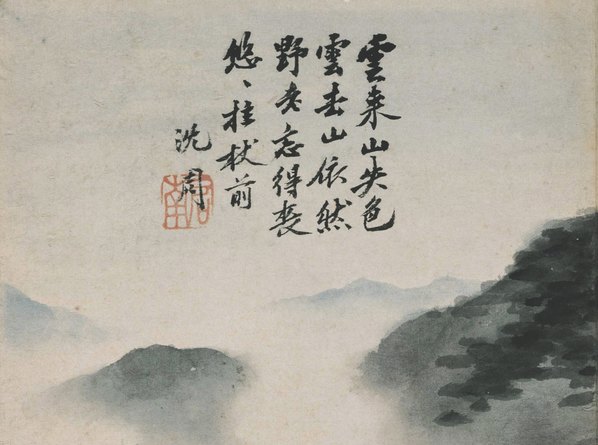 雲來山失色
雲去山依然
野老忘得喪
悠〻拄杖前
沈周
啓南